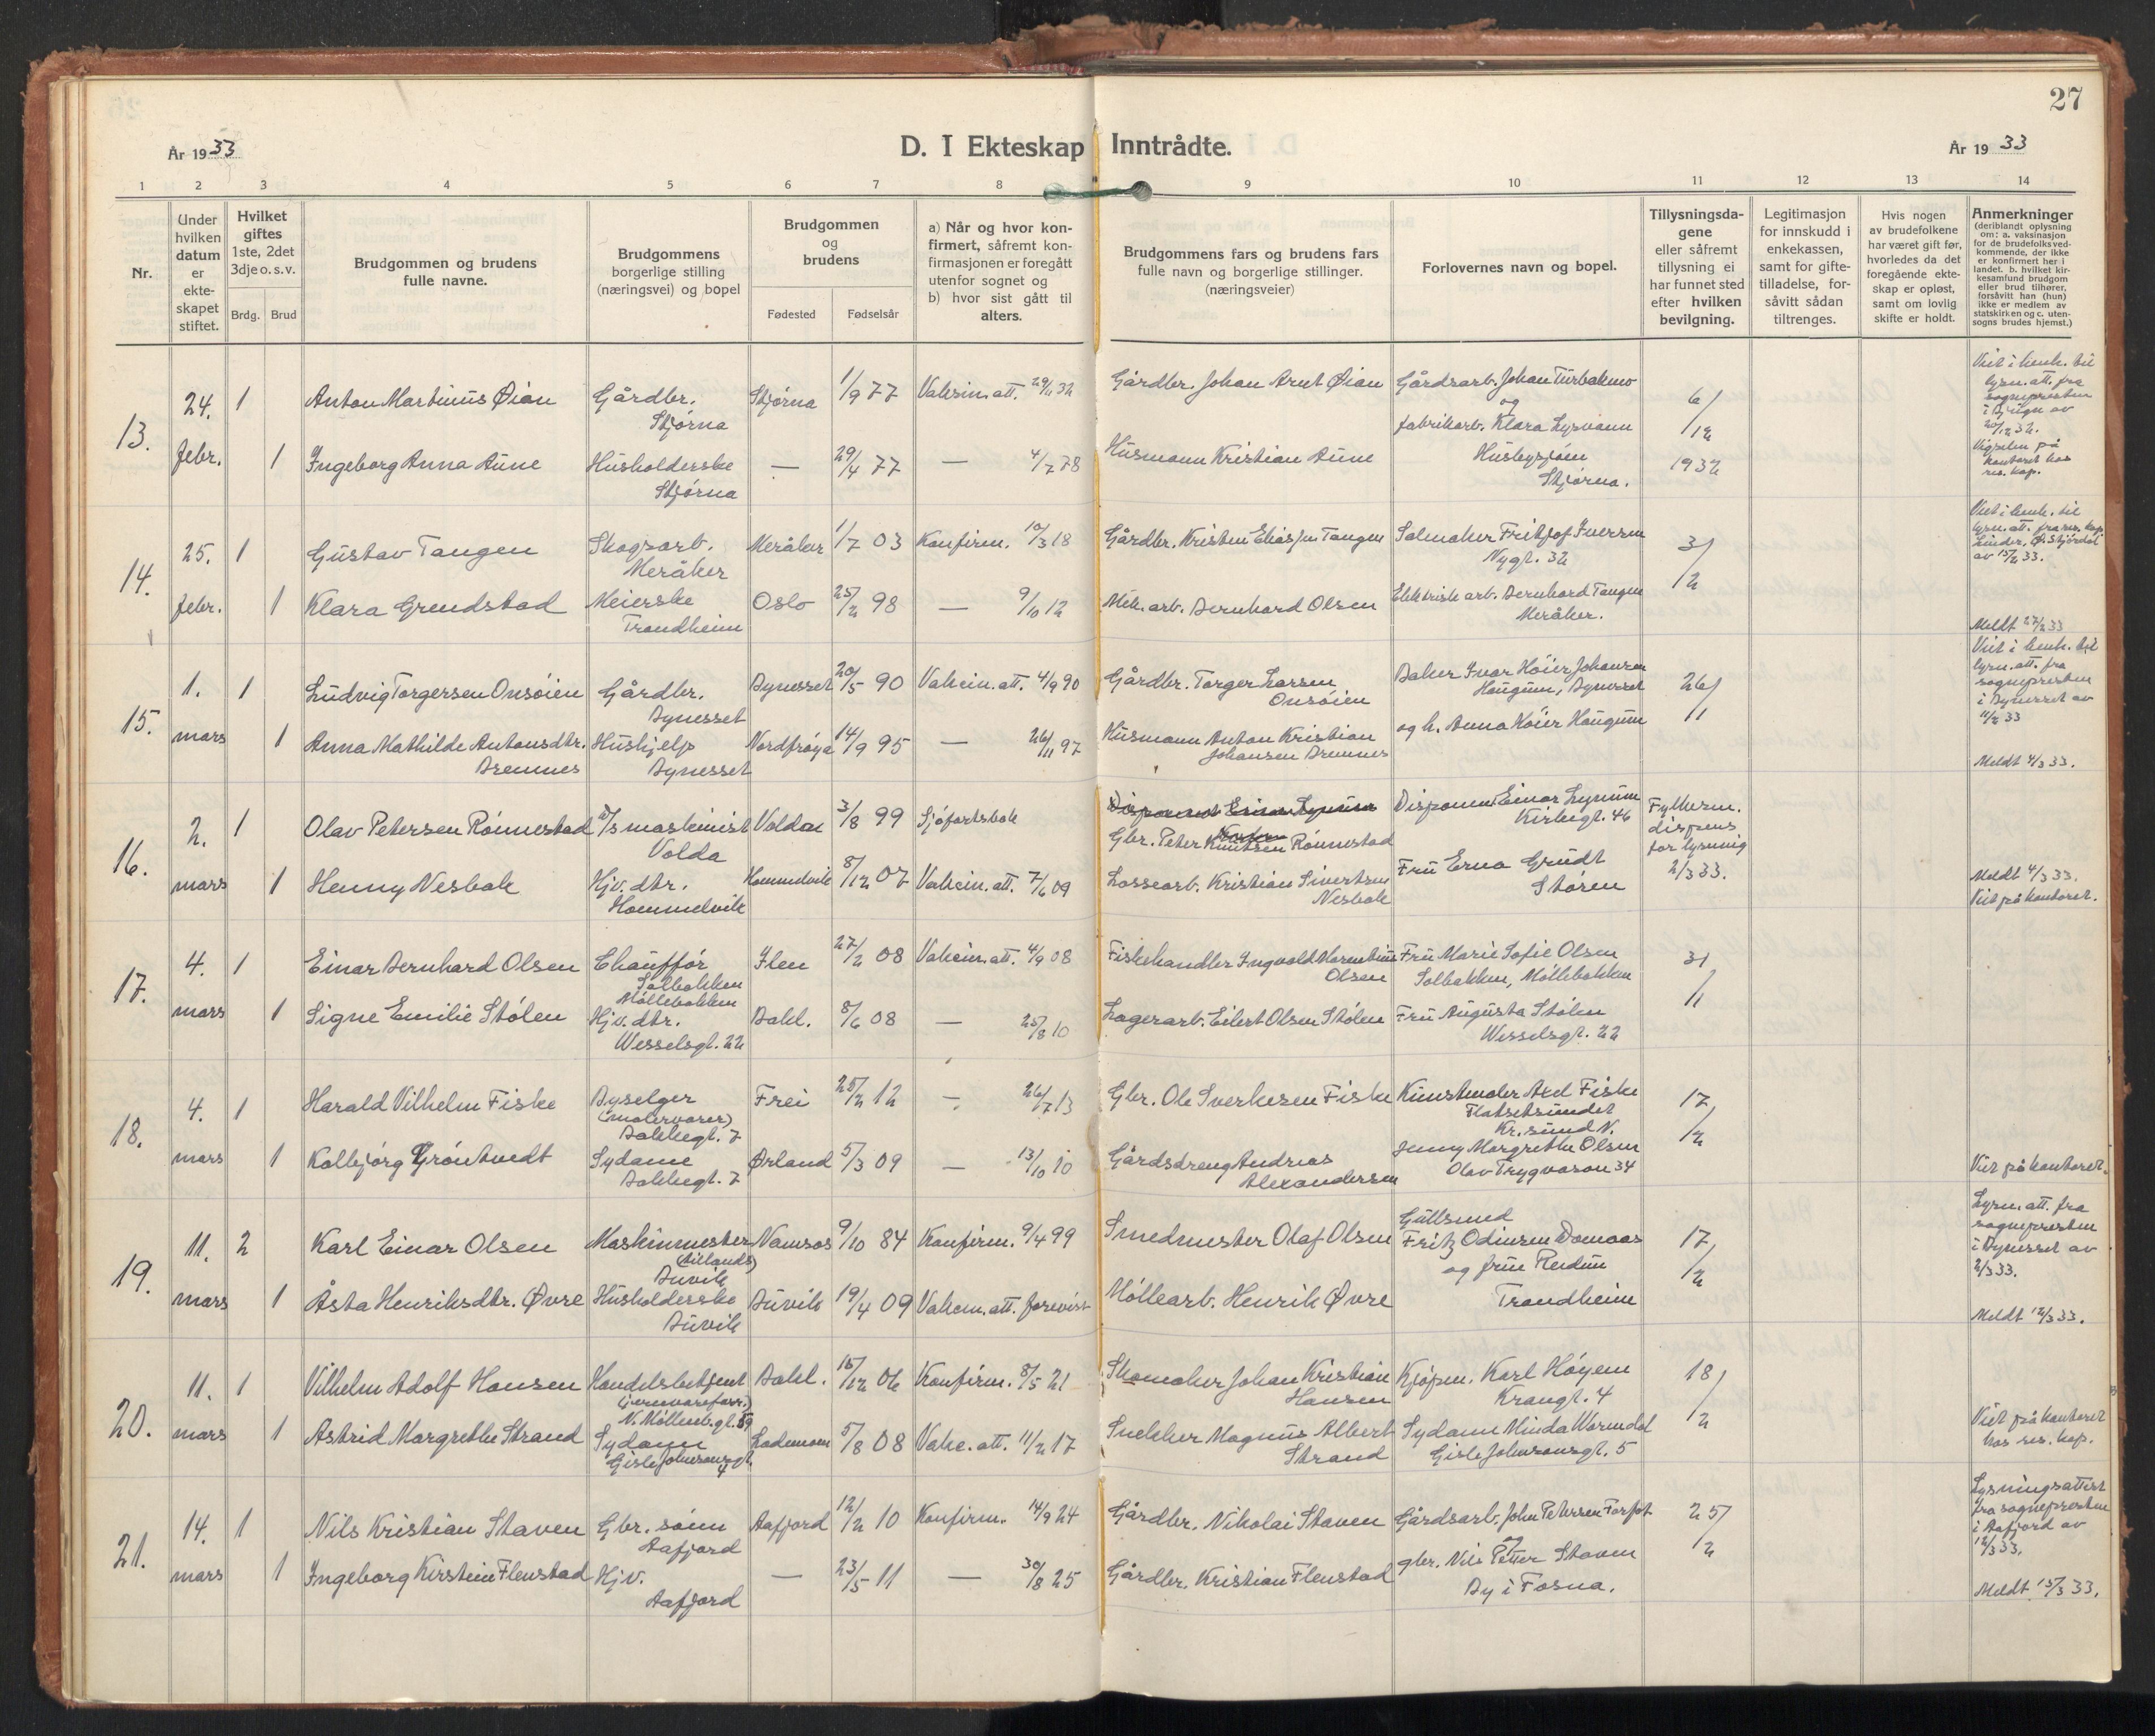 27
År 1933
D. I Ekteskap Inntrådte.
År 1933
1 2 3 4 5 6 7 8 9 10 11 12 13 14
Nr.
Under hvilken datum er ekteskapet stiftet.
Hvilket giftes 1ste, 2det 3dje o. s. v.
Brdg. Brud
Brudgommen og brudens fulle navne.
Brudgommens borgerlige stilling (næringsvei) og bopel
Brudgommen og brudens
Fødested Fødselsår
a) Når og hvor konfirmert, såfremt konfirmasjonen er foregått utenfor sognet og
b) hvor sist gått til alters.
Brudgommens fars og brudens fars fulle navn og borgerlige stillinger. (næringsveier)
Forlovernes navn og bopel.
Tillysningsdagene eller såfremt tillysning ei har funnet sted efter hvilken bevilgning.
Legitimasjon for innskudd i enkekassen, samt for giftetilladelse, forsåvitt sådan tiltrenges.
Hvis nogen av brudefolkene har været gift før, hvorledes da det foregående ekteskap er opløst, samt om lovlig skifte er holdt.
Anmerkninger (deriblandt oplysning om: a. vaksinasjon for de brudefolks vedkommende, der ikke er konfirmert her i landet. b. hvilket kirkesamfund brudgom eller brud tilhører, forsåvitt han (hun) ikke er medlem av statskirken og c. utensogns brudes hjemst.)
13. 24. febr.
1 Anton Martinus Øian Gårdbr. Stjørna Stjørna 1/9 77 Vaksin. att. 29/11 32 Gårdbr. Johan Arnt Øian Gårdsarb. Johan Turbekmo
og fabrikarb. Klara Lysvann
6/12 1932
1 Ingeborg Anna Aune Husholderske Stjørna — 29/4 77 — 4/7 78 Husmann Kristian Aune Husbysjøen Stjørna.
Viet i henh. til lysn. att. fra sognepresten i Bjugn av 20/12 32. Vigselen på kontoret hos res. kap.
14. 25. febr.
1 Gustav Tangen Skogsarb. Meråker Meråker 1/7 03 Konfirm. 10/3 18 Gårdbr. Kristen Eliassen Tangen Salmaker Fritjof Iversen Nygt. 32
3/2
1 Klara Grendstad Meierske Trondheim Oslo 25/2 98 — 9/10 12 Mek. arb. Bernhard Olsen Elektrisk arb. Bernhard Tangen Meråker.
Viet i henh. til lysn. att. fra res. kap. Linder, Ø. Stjørdal av 15/2 33.
Meldt 27/2 33
15. 1. mars
1 Ludvig Torgersen Onsøien Gårdbr. Bynesset Bynesset 20/5 90 Vaksin. att. 4/9 90 Gårdbr. Torger Larsen Onsøien Baker Ivar Høier Johansen Haugum, Bynesset
26/11
1 Anna Mathilde Antonsdtr. Bremnes Hushjelp Bynesset Nordfrøya 14/9 95 — 26/11 97 Husmann Anton Kristian Johansen Bremnes og h. Anna Høier Haugum
Viet i henh. til lysn. att. fra sognepresten i Bynesset av 11/2 33
Meldt 4/3 33.
16. 2. mars
1 Olav Petersen Rønnestad D/S maskinist Volda Voldai 3/8 99 Sjøfartsbok
Disponent Einar Lynum
Gbr. Peter Knutsen Rønnestad Disponent Einar Lynum Kirkegt. 46
Fylkesm. dispens for lysning 2/3 33.
1 Henny Nesbak Hjv. dtr. Hommelvik Hommelvik 8/12 07 Vaksin. att. 7/6 09 Lossearb. Kristian Sivertsen Nesbak Fru Erna Grudt Støren
Meldt 4/3 33.
Viet på kontoret.
17. 4. mars
1 Einar Bernhard Olsen Chauffør Solbakken Møllebakken Ilen 27/2 08 Vaksin. att. 4/9 08 Fiskehandler Ingvald Olsen Fru Marie Sofie Olsen Solbakken, Møllebakken
31/1
1 Signe Emilie Stølen Hjv. dtr. Wesselsgt. 22 Bakl. 8/6 08 — 25/8 10 Lagerarb. Eilert Olsen Stølen Fru Augusta Stølen Wesselsgt. 22
18. 4. mars
1 Harald Vilhelm Fiske Byselger (malervarer) Bakkegt. 7 Frei 25/2 12 — 26/7 13 Gbr. Ole Sverkesen Fiske Kunstmaler Axel Fiske Flatsetsundet Kr.sund N.
17/2
1 Kolbjørg Grøntvedt Sydame Bakkegt. 7 Ørland 5/3 09 — 13/10 10 Gårdsdreng Andreas Alexandersen Jenny Margrethe Olsen Olav Trygvason 34
Viet på kontoret.
19. 11. mars
2 Karl Einar Olsen Maskinmester Buvik Namsos 9/10 84 Konfirm. 9/4 99 Smedmester Olaf Olsen Gullsmed Fritz Odinsen Domaas og frue Reidun Trondheim
17/2
1 Åsta Henriksdtr. Øvre Husholderske Buvik Buvik 19/4 09 Vaksin. att. forevist Møllearb. Henrik Øvre
Lysn. att. fra sognepresten i Bynesset av 2/3 33.
Meldt 12/3 33.
20. 11. mars
1 Vilhelm Adolf Hansen Handelsbetjent (jernvareforr.) N. Møllenb.gt. 59 Bakl. 15/12 06 Konfirm. 8/5 21 Skomaker Johan Kristian Hansen Kjøpm. Karl Høyem Krangt. 4
18/2
1 Astrid Margrethe Strand Sydame Gisle Johnsonsgt. 4 Lademoen 5/8 08 Vaks. att. 11/2 17 Snekker Magnus Albert Strand Sydame Minda Wormdal Gisle Johnsonsgt. 5
Viet på kontoret hos res. kap.
21. 14. mars
1 Nils Kristian Staven Gbr. sønn Aafjord Aafjord 12/2 10 Konfirm. 14/9 24 Gårdbr. Nikolai Staven Gårdsarb. John Petersen Forfot
og gbr. Nils Petter Staven By i Fosna.
25/2
1 Ingeborg Kirstein Flenstad Hjv. Aafjord — 23/5 11 — 30/8 25 Gårdbr. Kristian Flenstad
Lysningsattest fra sognepresten i Aafjord av 12/3 33.
Meldt 15/3 33.